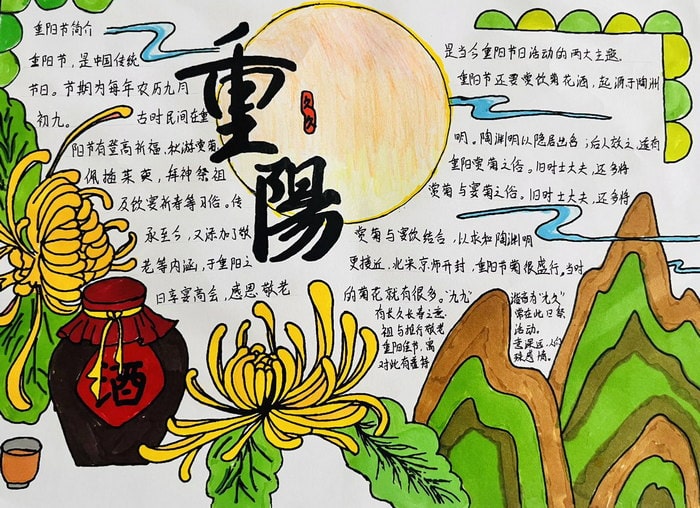 重阳节简介
重阳节，是中国传统
节日。节期为每年农历九月
初九。 古时民间在重
阳节有登高祈福、秋游赏菊、
佩插茱萸，拜神祭祖
及饮宴祈寿等习俗。传
承至今，又添加了敬
老等内涵，于重阳之
日享宴高会，感恩敬老
重陽
九九
是当今重阳节日活动的两大主题。
重阳节还要赏饮菊花酒，起源于陶渊
明。陶渊明以隐居出名；后人效之，遂有
重阳赏菊之俗。旧时士大夫，还多将
赏菊与宴菊之俗。旧时士大夫，还多将
赏菊与宴饮结合，以求和陶渊明
更接近，北宋京师开封，重阳节菊很盛行。当时
的菊花就有很多。"九九"
有长久长寿之意，
祖与推行敬老
重阳佳节，寓
对此有着特
谐音为"久久"
常在此日祭
活动。
意深远，人们
殊感情。
酒